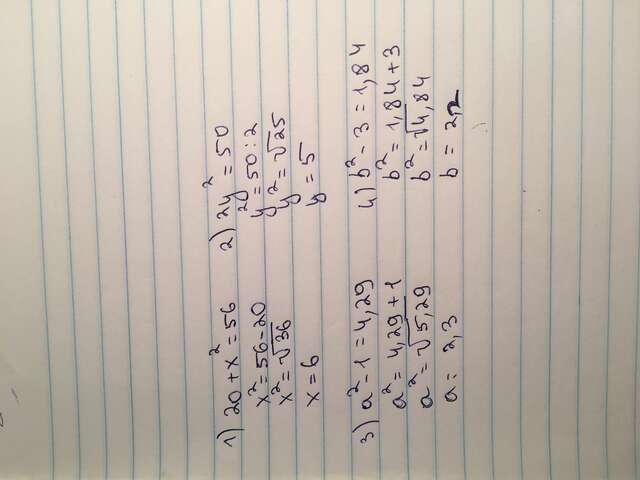 1) 20 + x² = 56
x² = 56 - 20
x² = √36
x = 6
2) 2y² = 50
y² = 50 : 2
y² = √25
y = 5
3) a² - 1 = 4,29
a² = 4,29 + 1
a² = √5,29
a = 2,3
4) b² - 3 = 1,84
b² = 1,84 + 3
b² = √4,84
b = 2,2